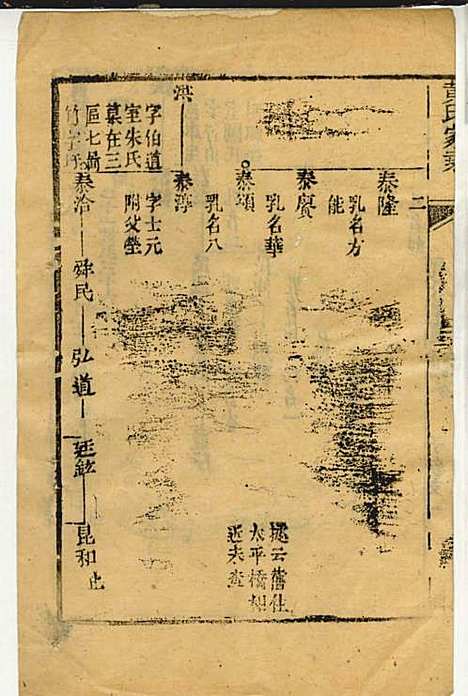 黄氏家乘
二
泰隆
乳名方
能
泰賡
乳名華
泰頌
乳名八
洪
泰淳
字伯道
字士元
室朱氏
附父塋
墓在三
區七啚
竹字圩
泰洽
舜民
弘道
廷鉉
昆和止
據云舊住
太平橋
近未查